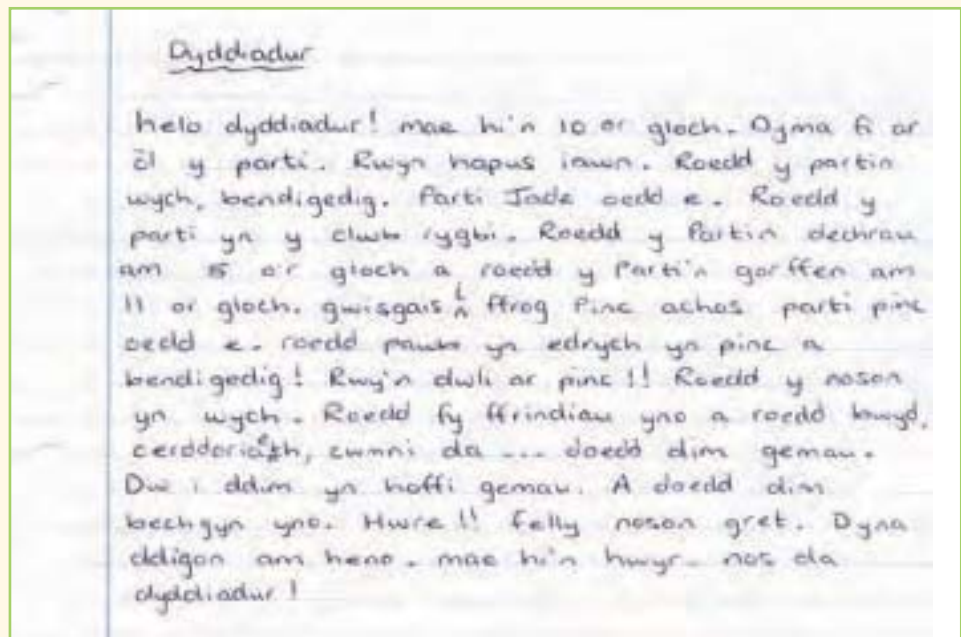 Dyddiadur
helo dyddiadur! mae hi'n 10 or gloch. Dyma fi ar
ôl y parti. Rwyn hapus iawn. Roedd y partin
wych, bendigedig. Parti Jade oedd e. Roedd y
parti yn y clwb rygbi. Roedd y Partin dechrau
am 5 o'r gloch a roedd y Parti'n gorffen am
11 or gloch. gwisgais i ffrog Pinc achos parti pinc
oedd e. roedd pawb yn edrych yn pinc a
bendigedig! Rwy'n dwli ar pinc!! Roedd y noson
yn wych. Roedd fy ffrindiau yno a roedd bwyd,
cerddoriaeth, cwmni da ... doedd dim gemau.
Dw i ddim yn hoffi gemau. A doedd dim
bechgyn yno. Hwre!! felly noson gret. Dyna
ddigon am heno. mae hi'n hwyr. nos da
dyddiadur!